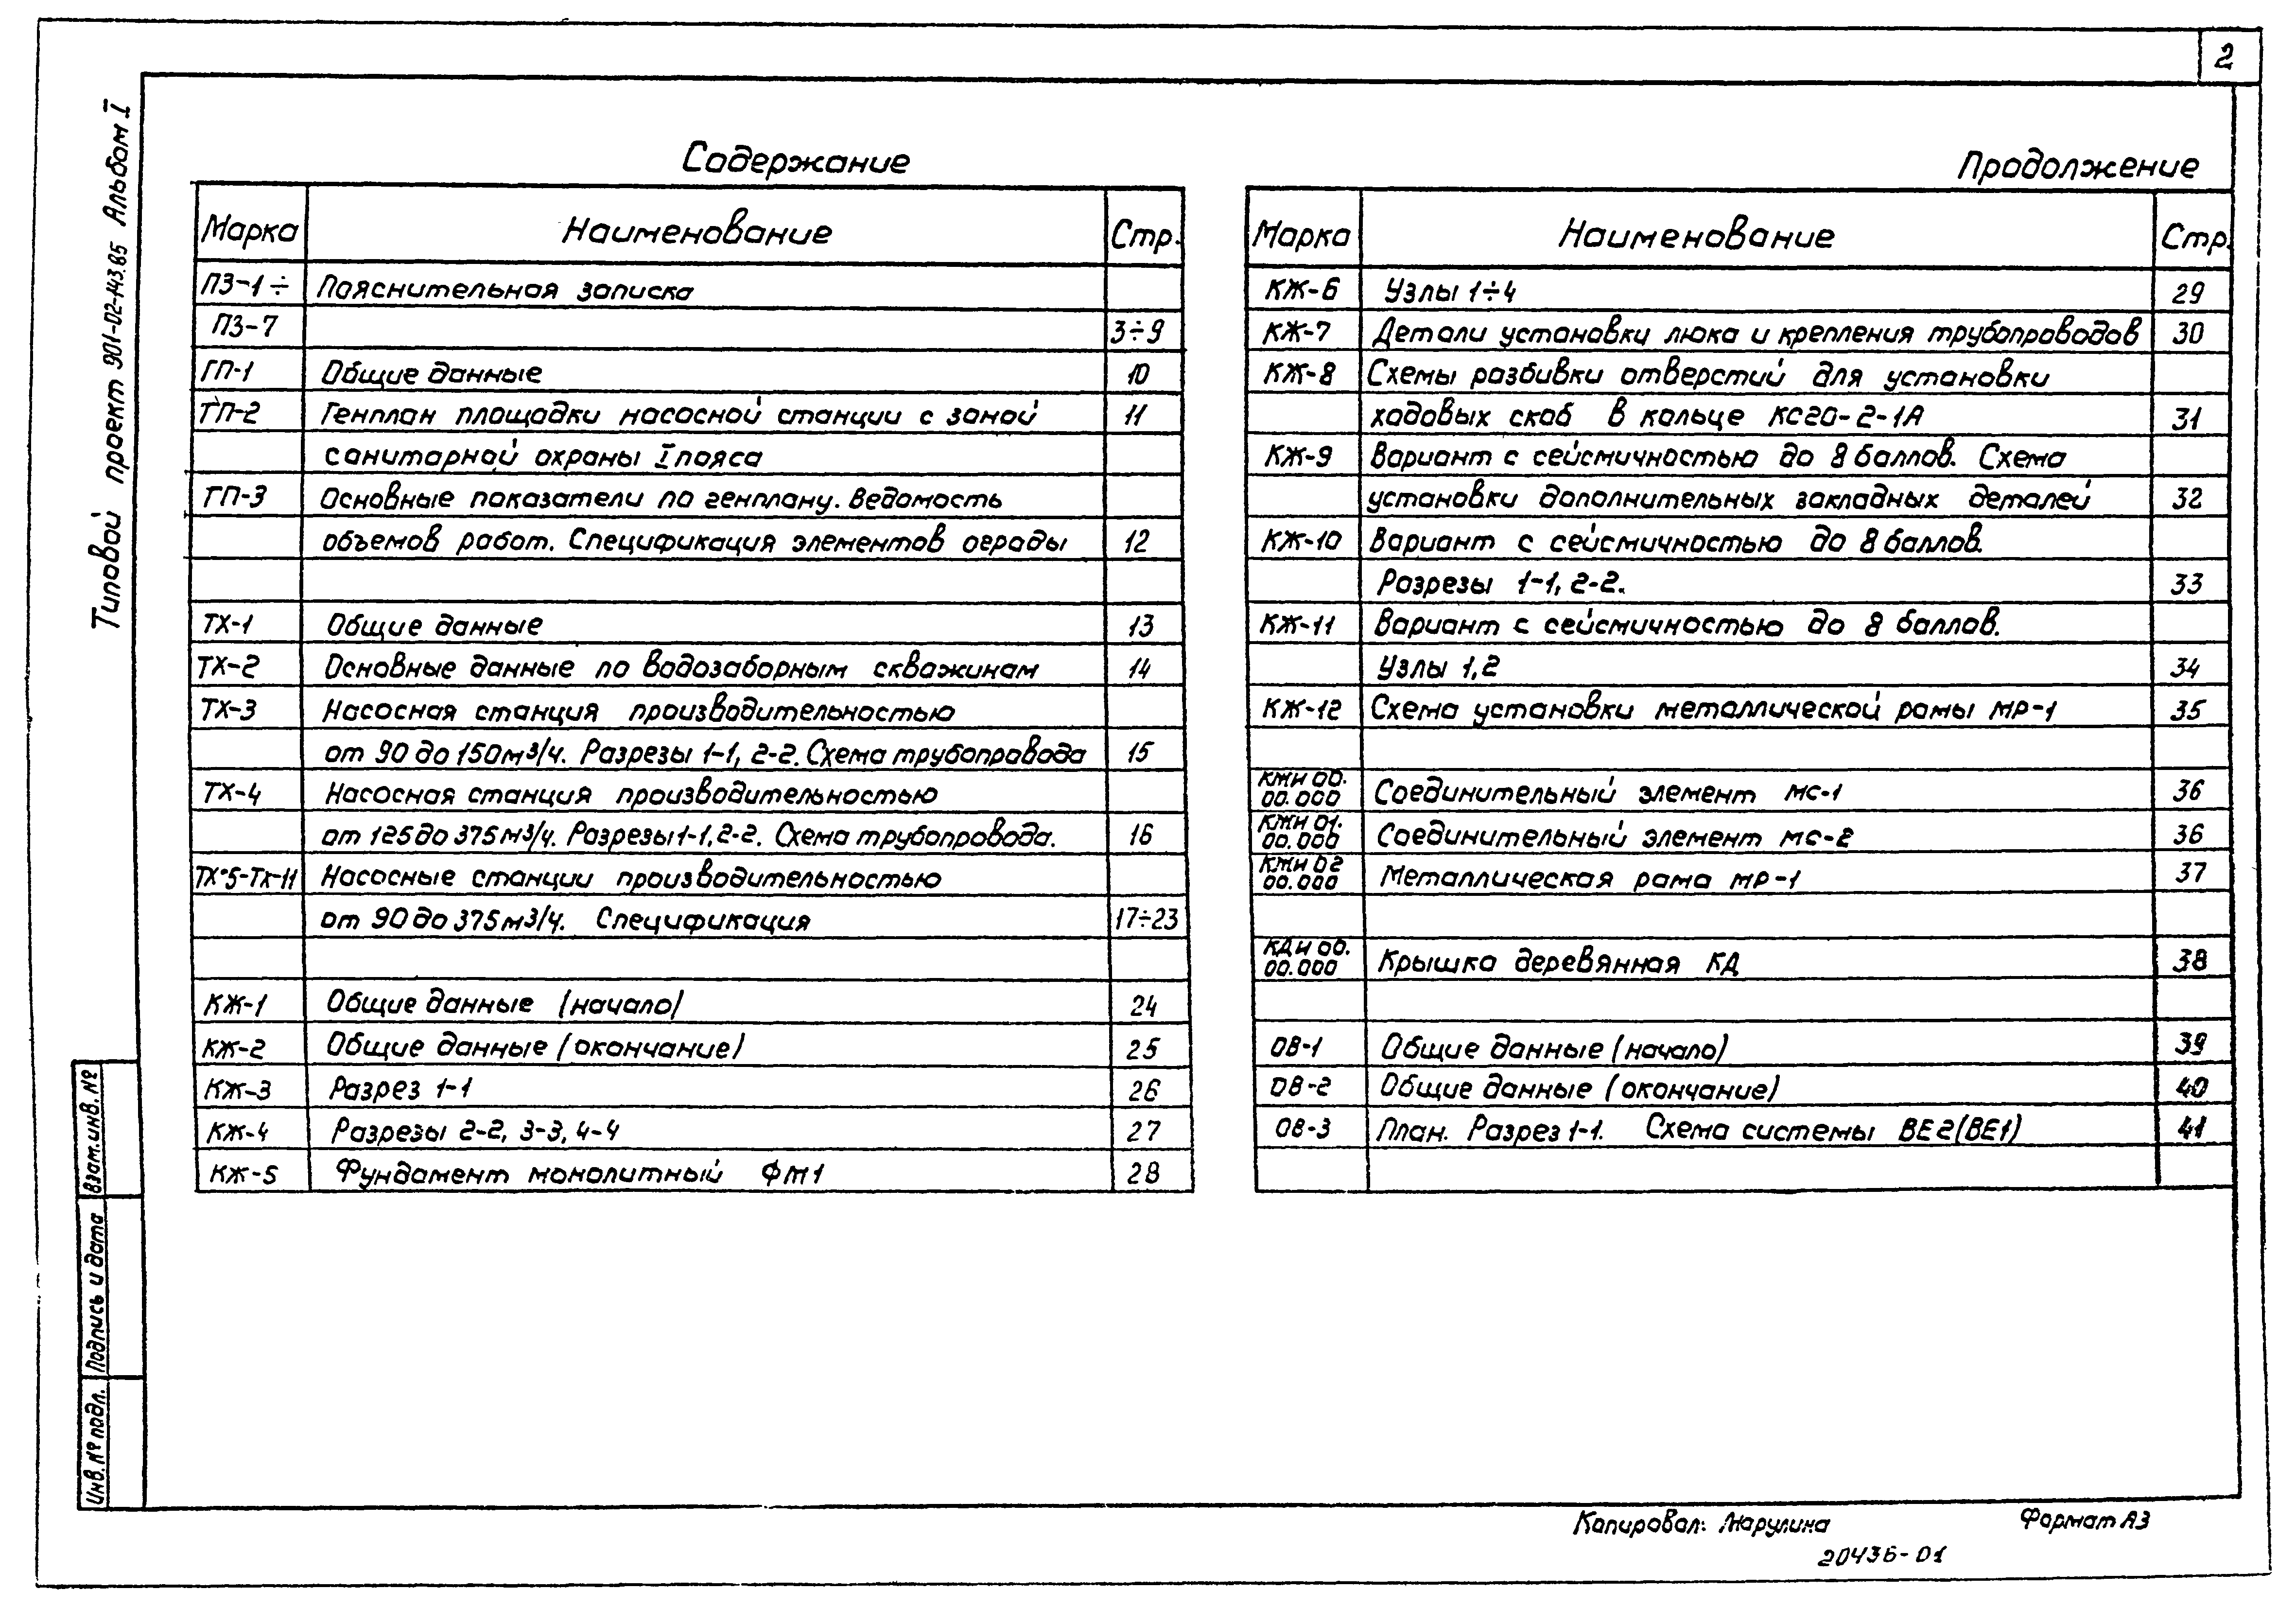 2
Типовой проект 901-02-143.85 Альбом I
Содержание
Марка Наименование Стр.
ПЗ-1÷ Пояснительная записка
ПЗ-7 3÷9
ГП-1 Общие данные 10
ГП-2 Генплан площадки насосной станции с зоной 11
санитарной охраны I пояса
ГП-3 Основные показатели по генплану. Ведомость
объемов работ. Спецификация элементов ограды 12
ТХ-1 Общие данные 13
ТХ-2 Основные данные по водозаборным скважинам 14
ТХ-3 Насосная станция производительностью
от 90 до 150 м3/ч. Разрезы 1-1, 2-2. Схема трубопровода 15
ТХ-4 Насосная станция производительностью
от 125 до 375 м3/ч. Разрезы 1-1, 2-2. Схема трубопровода. 16
ТХ-5-ТХ-11 Насосные станции производительностью
от 90 до 375 м3/ч. Спецификация 17÷23
КЖ-1 Общие данные (начало) 24
КЖ-2 Общие данные (окончание) 25
КЖ-3 Разрез 1-1 26
КЖ-4 Разрезы 2-2, 3-3, 4-4 27
КЖ-5 Фундамент монолитный ФМ1 28
Продолжение
Марка Наименование Стр.
КЖ-6 Узлы 1÷4 29
КЖ-7 Детали установки люка и крепления трубопроводов 30
КЖ-8 Схемы разбивки отверстий для установки
ходовых скоб в кольце КС20-2-1А 31
КЖ-9 Вариант с сейсмичностью до 8 баллов. Схема
установки дополнительных закладных деталей 32
КЖ-10 Вариант с сейсмичностью до 8 баллов.
Разрезы 1-1, 2-2. 33
КЖ-11 Вариант с сейсмичностью до 8 баллов.
Узлы 1,2 34
КЖ-12 Схема установки металлической рамы МР-1 35
КЖИ 00.
00.000 Соединительный элемент МС-1 36
КЖИ 01.
00.000 Соединительный элемент МС-2 36
КЖИ 02
00.000 Металлическая рама МР-1 37
КДИ 00.
00.000 Крышка деревянная КД 38
ОВ-1 Общие данные (начало) 39
ОВ-2 Общие данные (окончание) 40
ОВ-3 План. Разрез 1-1. Схема системы ВЕ2(ВЕ1) 41
Взам.инв.№
Подпись и дата
Инв.№ подл.
Копировал: Марулина Формат А3
20436-01